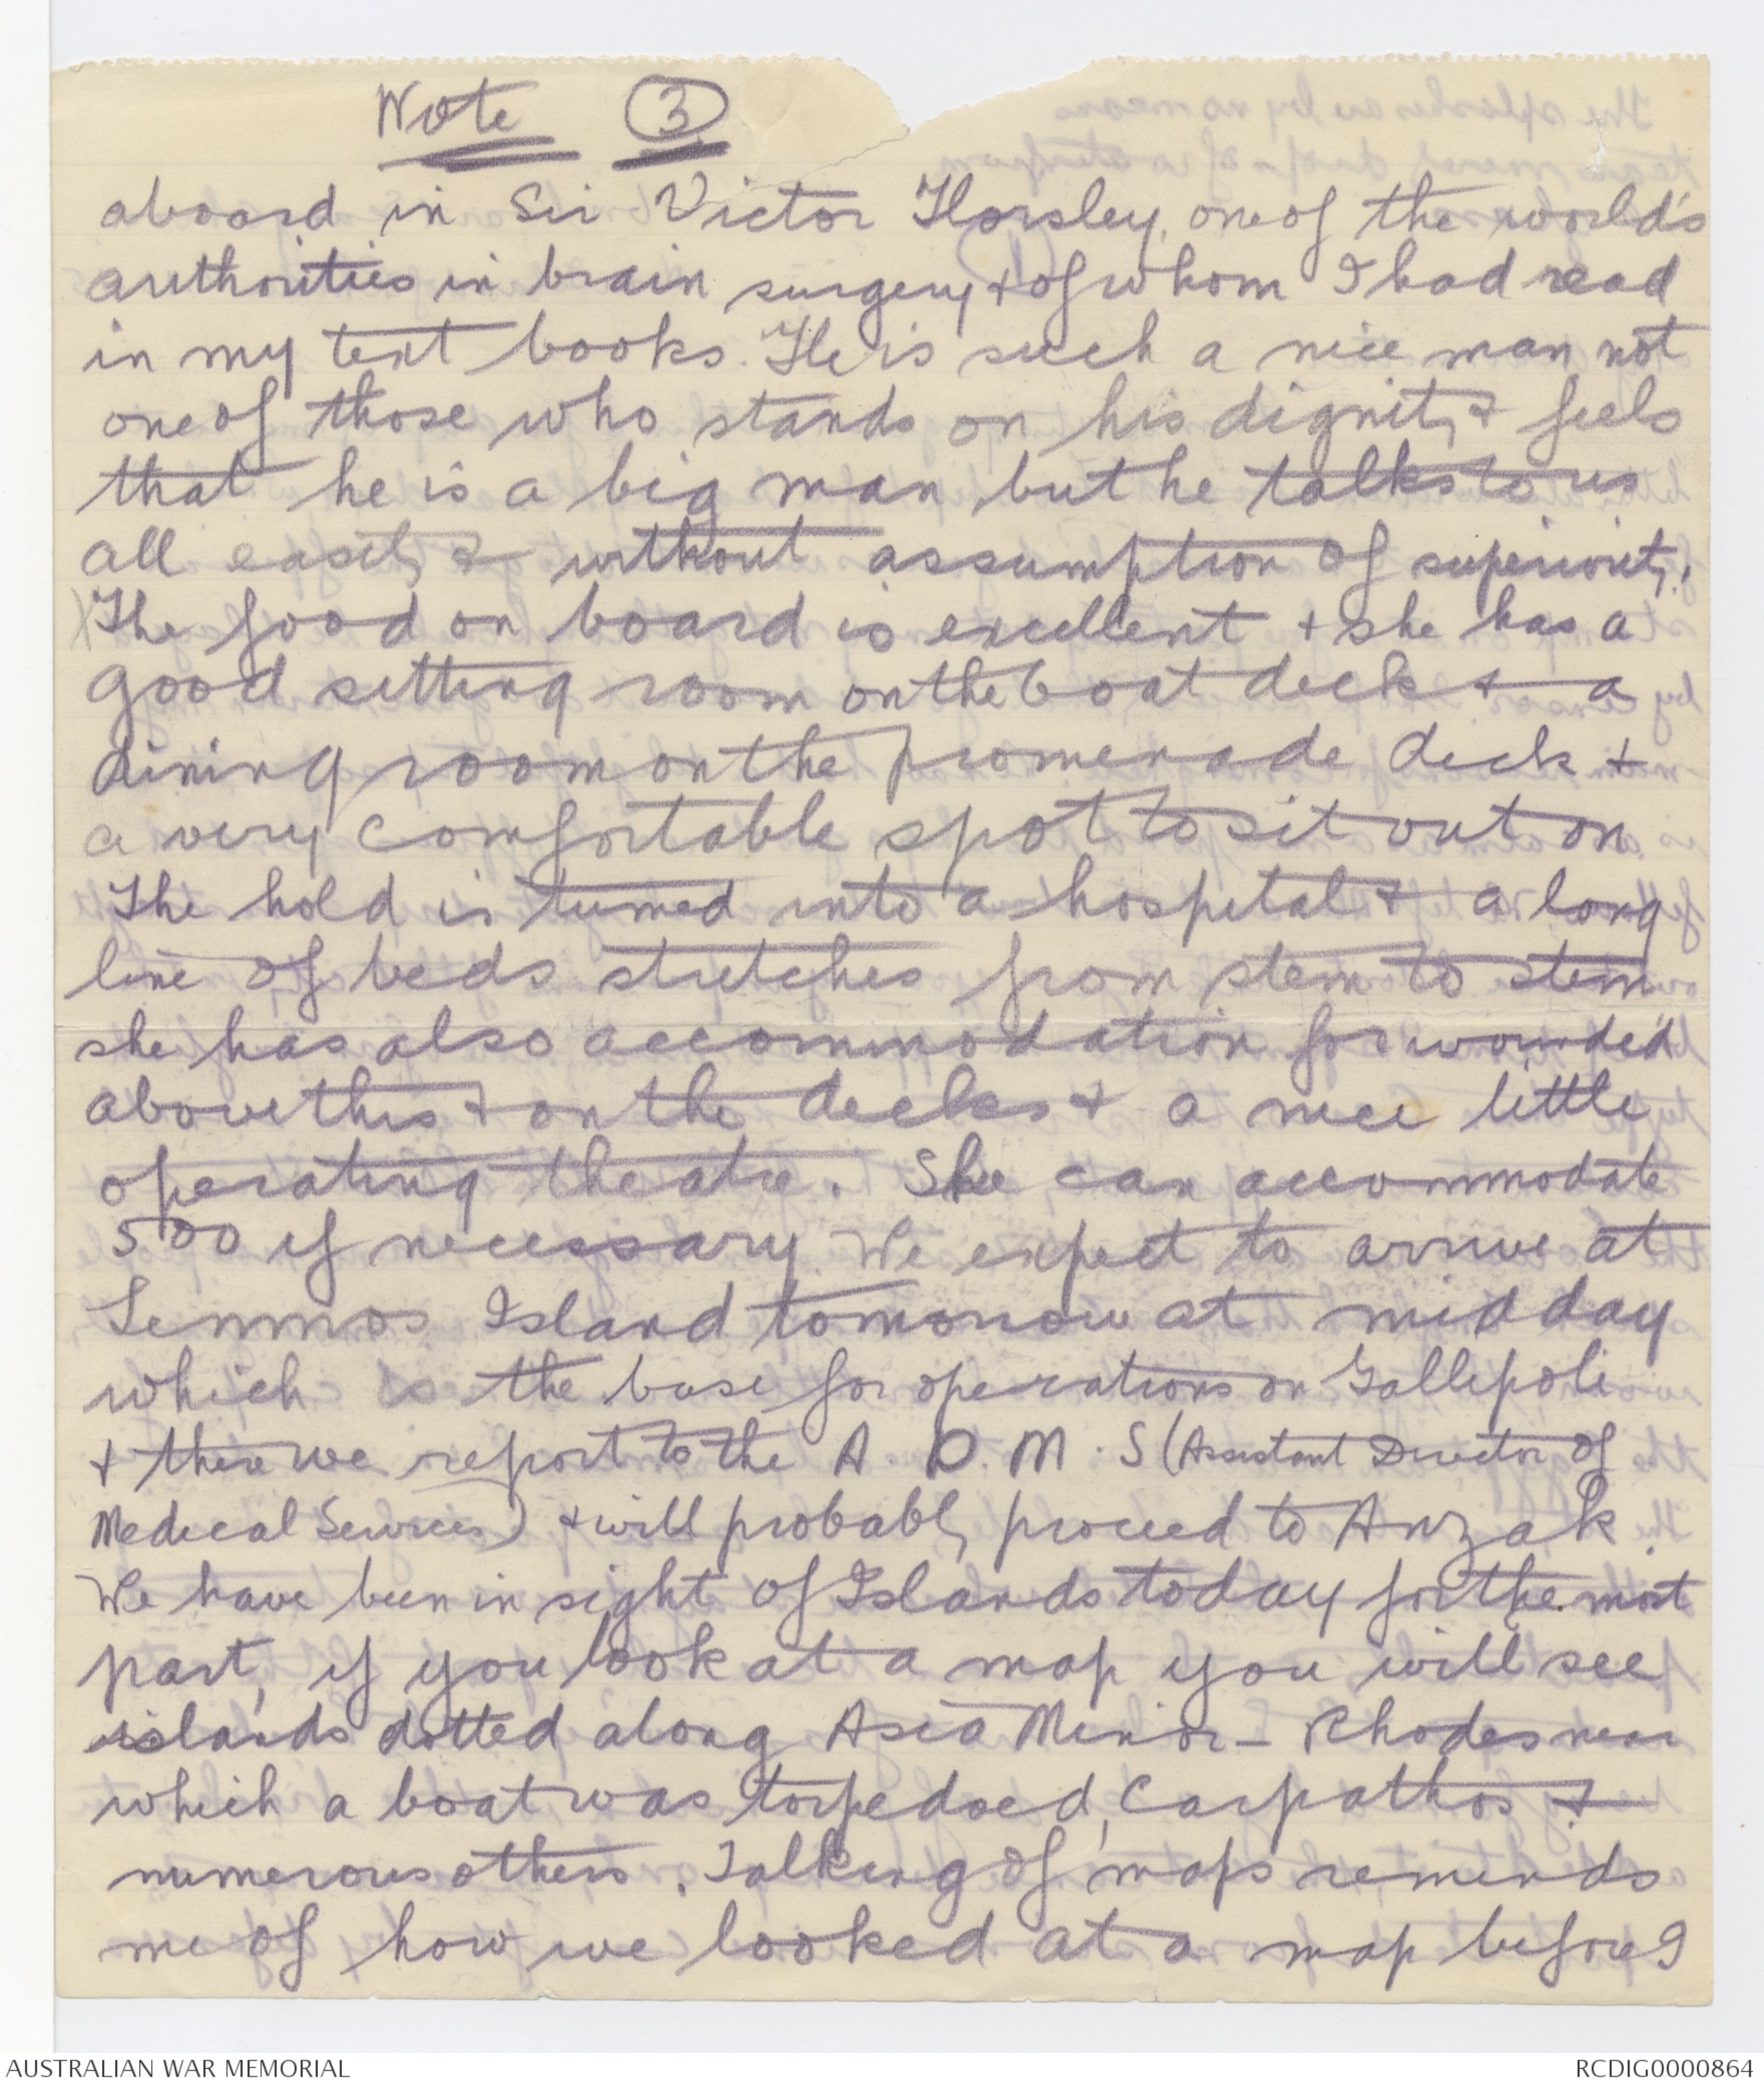 Note 3
aboard in Sir Victor Horsley, one of the world's
authorities in brain surgery & of whom I had read
in my text books. He is such a nice man not
one of those who stands on his dignity & feels
that he is a big man, but he talks to us
all easily & without assumption of superiority.
X The food on board is excellent & she has a
good sitting room on the boat deck & a
dining room on the promenade deck &
a very comfortable spot to sit out on.
The hold is turned into a hospital & a long
line of beds stretches from stem to stern
she has also accommodation for wounded
above this & on the decks & a nice little
operating theatre. She can accommodate
500 if necessary. We expect to arrive at
Lemnos Island tomorrow at midday
which is the base for operations on Gallipoli
& there we report to the A.D.M.S (Assistant Director of
Medical Services) & will probably proceed to Anzak.
We have been in sight of Islands today for the most
part, if you look at a map you will see
islands dotted along Asia Minor - Rhodes near
which a boat was torpedoed, Carpathos &
numerous others. Talking of maps reminds
me of how we looked at a map before I
AUSTRALIAN WAR MEMORIAL
RCDIG0000864